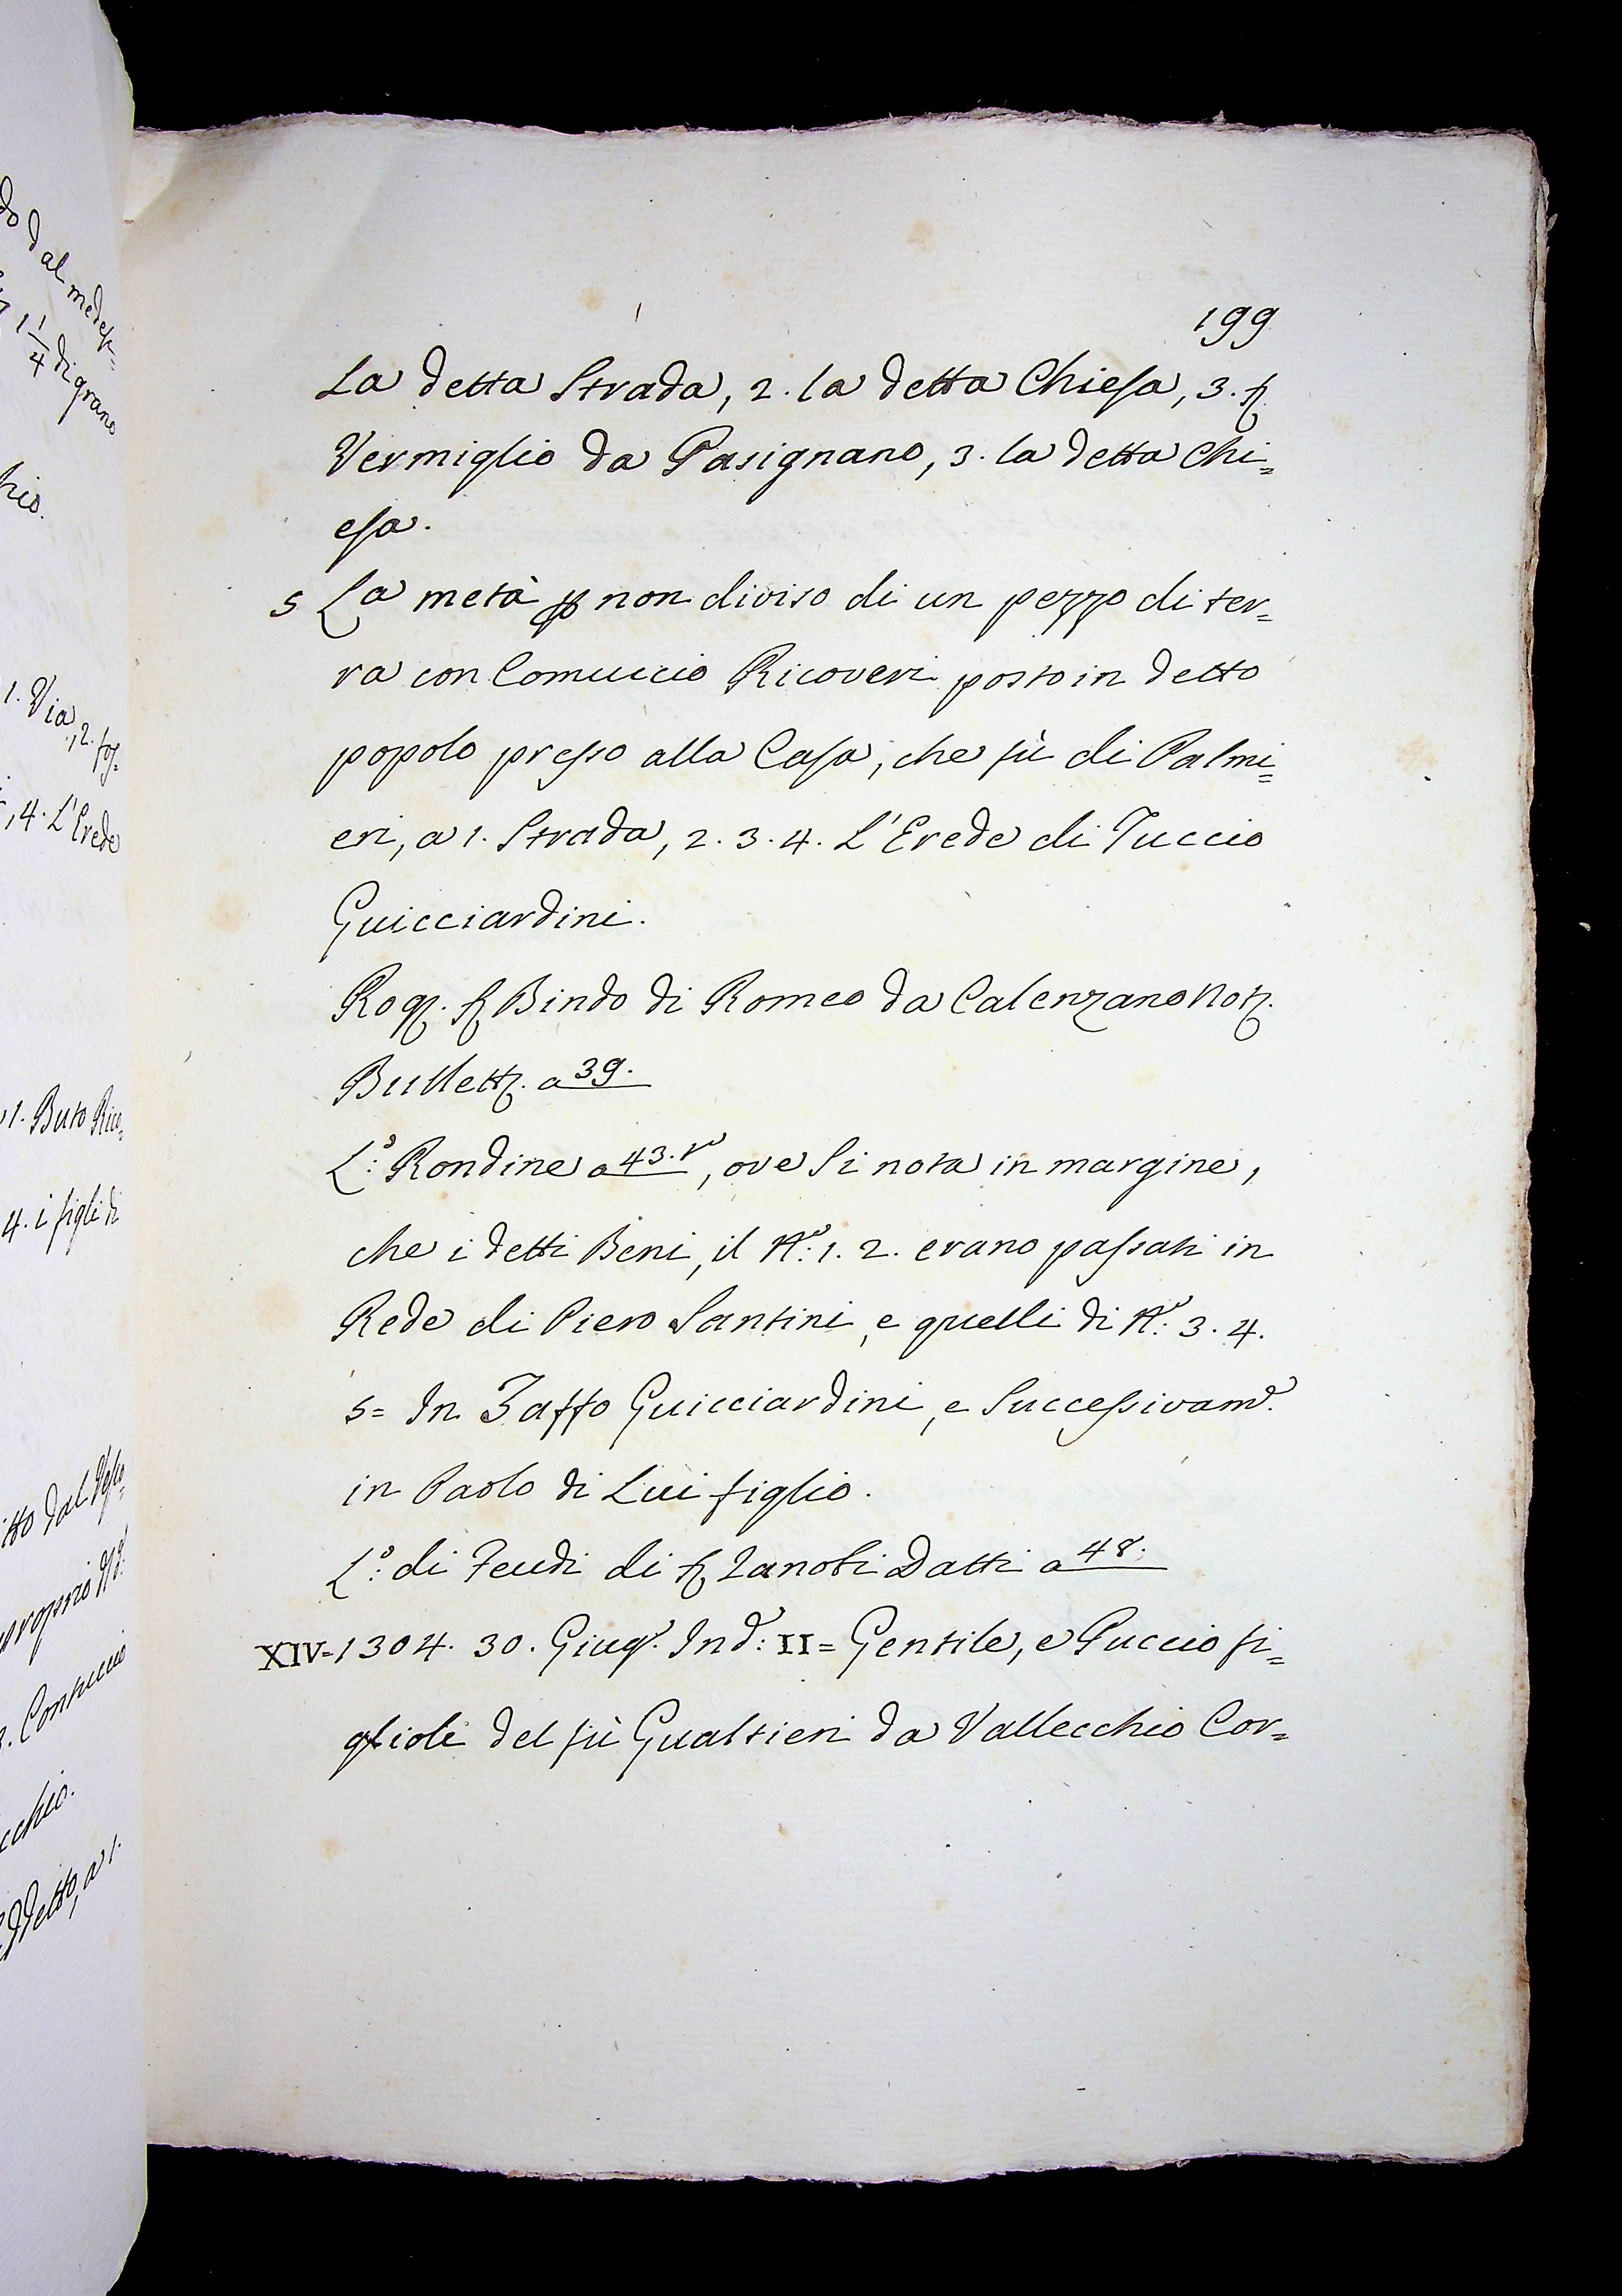 do dal medes=
1 1/4 di grano
hio.
1. Via, 2. fos=
, 4. L'Erede
1. Buto Rico=
4. i figli di
itto dal
proprio
cchio.
detto, a 1.
199
La detta Strada, 2. la detta Chiesa, 3. S.
Vermiglio da Pasignano, 3. la detta Chi=
esa.
5 La metà p non diviso di un pezzo di ter=
ra con Comuccio Ricoveri posto in detto
popolo presso alla Casa, che fù di Palmi=
eri, a 1. Strada, 2. 3. 4. L'Erede di Tuccio
Guicciardini.
Rog. S. Bindo di Romeo da Calenzano Not.
Bullett. a 39.
L.o: Rondine a 43.t, ove si nota in margine,
che i detti Beni, il N.o: 1. 2. erano passati in
Rede di Piero Santini, e quelli di N.o: 3. 4.
5= In Zaffo Guicciardini, e Successivam.e
in Paolo di Lui figlio.
L.o: di Feudi di S. Zanobi Datti a 48.
XIV=1304. 30. Giug.o Ind.e: II= Gentile, e Puccio fi=
glioli del fù Gualtieri da Vallecchio Cor=